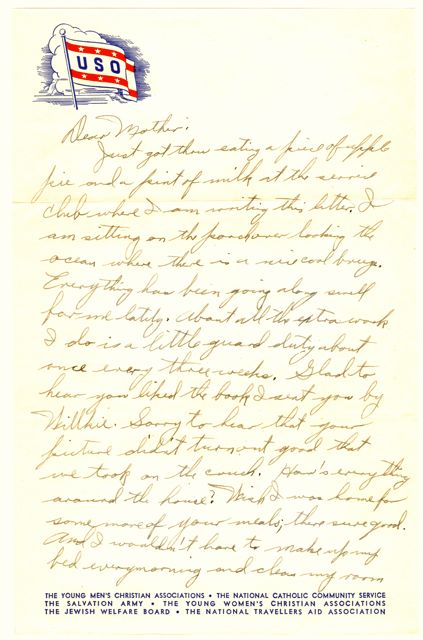 USO
Dear Mother:
Just got thru eating a piece of apple
pie and a pint of milk at the service
club where I am writing this letter. I
am sitting on the porch over looking the
ocean where there is a nice cool breeze.
Everything has been going along swell
for me lately. About all the extra work
I do is a little guard duty about
once every three weeks. Glad to
hear you liked the book I sent you by
Willkie. Sorry to hear that your
picture didn't turn out good that
we took on the couch. How's everything
around the house? Wish I was home for
some more of your meals; there sure good.
And I wouldn't have to make up my
bed every morning and clean my room
THE YOUNG MEN'S CHRISTIAN ASSOCIATIONS • THE NATIONAL CATHOLIC COMMUNITY SERVICE
THE SALVATION ARMY • THE YOUNG WOMEN'S CHRISTIAN ASSOCIATIONS
THE JEWISH WELFARE BOARD • THE NATIONAL TRAVELLERS AID ASSOCIATION